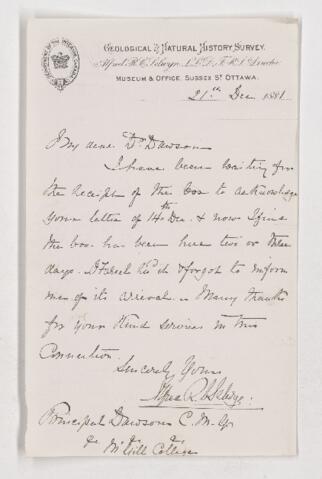 GEOLOGICAL & NATURAL HISTORY SURVEY.
Alfred R. C. Selwyn, L.L.D., F.R.S., Director
MUSEUM & OFFICE, SUSSEX ST OTTAWA.
21st Dec 1881
My dear Dr Dawson
I have been waiting for
the receipt of the box to acknowledge
your letter of 14th Dec. & now I find
the box has been here two or three
days. forgot to inform
me of its arrival. Many thanks
for your kind services in this
Connection.
Sincerely Yours
Alfred R. C. Selwyn
Principal Dawson C.M.G.
McGill College